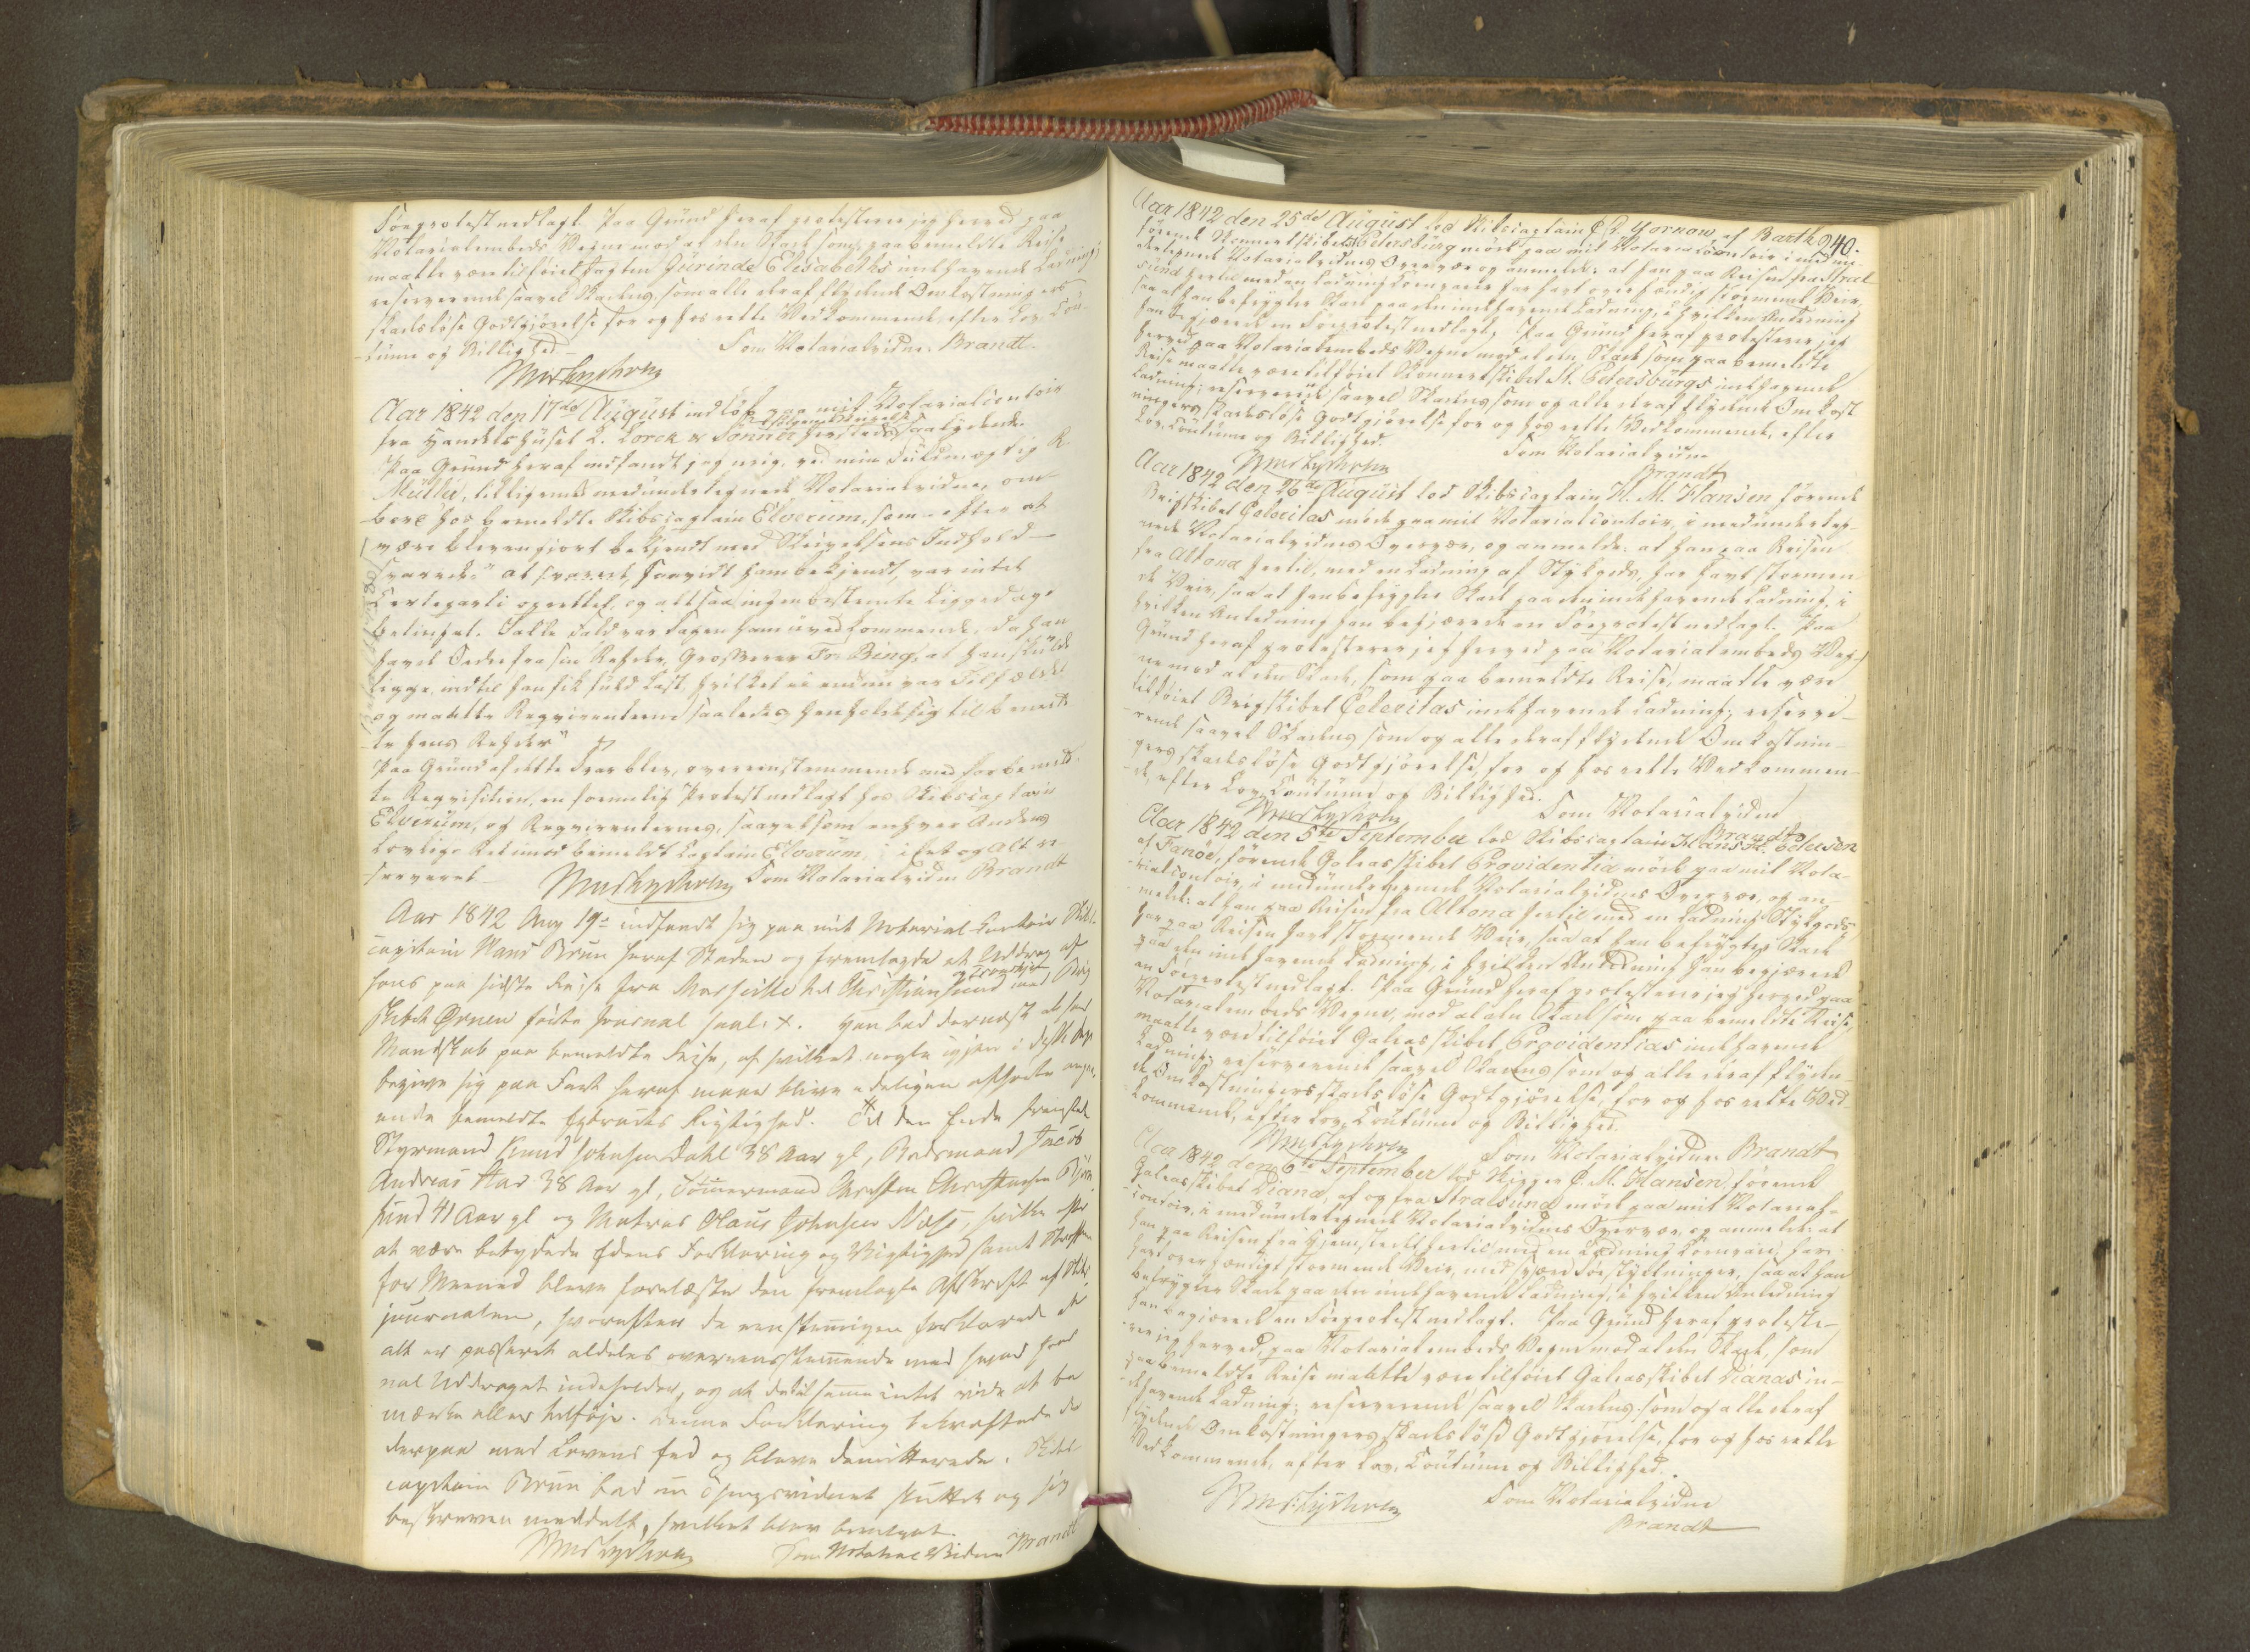 Søeprotest nedlagt. Paa Grund heraf protesterer jeg herved paa
Notarialembeds Vegne mod al den Skade som paa bemeldte Reise
maatte være tilføiet Jagten Gurinde Elisabeths indehavende Ladning;
reserverende saavel Skadens, som alle deraf flydende Omkostningers
skadesløse Godtgjørelse for og hos rette Vedkommende, efter Lov, Cou-
tume og Billighed. Som Notarialvidne. Brandt
Aar 1842 den 17de August indløb paa mit Notarialcontoir
fra Handelshuset L. Lorck & Sønner hersteds saalydende
Paa Grund heraf indfandt jeg mig, ved min Fuldmægtig R.
Müller, tilligemed medundertegnede Notarialvidne, om-
bord hos bemeldte Skibscaptain Elverum, som efter at
være bleven gjort bekjendt med Skrivelsens Indhold
svarede: "at forsaavidt ham bekjendt, var intet
Certeparti oprettet, og altsaa ingen bestemte Liggedage
betinget. I alle Fald var Sagen ham uvedkommende, da han
havde Ordre fra sin Rheder, Grosserer Fr. Bing, at han skulde
ligge, indtil han fik fuld Last, hvilket ei endnu var Tilfældet
og maatte Reqvirenterne saaledes henholde sig til bemeld-
te hans Rheder"
Paa Grund af dette Svar blev, overeensstemmende med forbemeld-
te Reqvisition, en formelig Protest nedlagt hos Skibscaptain
Elverum, og Reqvirenternes, saavelsom enhver Andens
lovlige Ret imod bemeldte Captain Elverum, i Eet og Alt re-
serveret. Som Notarialvidne Brandt
Aar 1842 Aug 19de indfandt sig paa mit Notarial-Contoir Skibs-
capitain Hans Brun heraf Staden og fremlagde et Uddrag af
hans paa sidste Reise fra Marseille til Christiansund og Trondhjem med Brig
skibet Ørnen førte Journal saal: X. Han bad dernæst at hans
Mandskab paa bemeldte Reise, af hvilket nogle igjen i disse Dage
begive sig paa Fart heraf maae blive edeligen afhørte angaa-
ende bemeldte Extracts Rigtighed. Til den Ende fremstod
Styrmand Knud Johnsen Dahl 38 Aar gl, Baadsmand Jacob
Andreas Aas 38 Aar gl, Tømmermand Christen Christensen Bjørn
sund 41 Aar gl og Matros Olaus Johnsen Næss, hvilke efter
at være betydede Edens Forklaring og Vigtighed samt Straffen
for Meeneed bleve forelæste den fremlagte Afskrift af Skibs-
journalen, hvorefter de eenstemmigen forklarede at
alt er passeret aldeles overeensstemmende med hvad Jour
nal Uddraget indeholder, og at de til samme intet vide at be
mærke eller tilføje. Denne Forklaring bekræftede de
derpaa med Lovens Eed og bleve demitterede. Skibs
capitain Brun bad nu Thingsvidnet sluttet og sig
beskreven meddelt, hvilket blev bevilget.
Som Notarial Vidne Brandt
240.
Aar 1842 den 25de August lod Skibscaptain C. P. Yornow af Barth
førende Skonnertskibet St. Petersburg møde paa mit Notarialcontoir i medun-
dertegnede Notarialvidnes Overvær og anmelde: at han paa Reisen fra Stral-
sund hertil med en Ladning Kornvarer har havt overhændig stormende Veir,
saa at han befrygter Skade paa den indehavende Ladning, i hvilken Anledning
han begjærede en Søeprotest nedlagt. Paa Grund heraf protesterer jeg
herved paa Notarialembeds Vegne mod al den Skade som paa bemeldte
Reise maatte være tilføiet Skonnertskibet St. Petersburgs indehavende
Ladning; reserverende saavel Skadens som og alle deraf flydende Omkost
ningers skadesløse Godtgjørelse for og hos rette Vedkommende, efter
Lov, Coutume og Billighed.
Som Notarialvidne
Brandt
Aar 1842 den 26de August lod Skibscaptain H. M. Hansen førende
Brigskibet Celeritas møde paa mit Notarialcontoir, i medunderteg-
nede Notarialvidnes Overvær, og anmelde: at han paa Reisen
fra Altona hertil, med en Ladning af Stykgods, har havt stormen
de Veir, saa at han befrygter Skade paa den indehavende Ladning, i
hvilken Anledning han begjærede en Søeprotest nedlagt. Paa
Grund heraf protesterer jeg herved paa Notarialembeds Veg-
ne mod al den Skade, som paa bemeldte Reise maatte være
tilføiet Brigskibet Celeritas indehavende Ladning; reserve-
rende saavel Skadens som og alle deraf flydende Omkostnin-
gers skadesløse Godtgjørelse, for og hos rette Vedkommen-
de, efter Lov, Coutume og Billighed.
Som Notarialvidne
Brandt
Aar 1842 den 5te September lod Skibscaptain Hans H. Petersen
af Fanöe, førende Galeasskibet Providentia møde paa mit Nota-
rialcontoir, i medundertegnede Notarialvidnes Overvær, og an-
melde: at han paa Reisen fra Altona hertil med en Ladning Stykgods,
har paa Reisen havt stormende Veir, saa at han befrygter Skade
paa den indehavende Ladning, i hvilken Anledning han begjærede
en Søeprotest nedlagt. Paa Grund heraf protesterer jeg herved paa
Notarialembeds Vegne, mod al den Skade som paa bemeldte Reise,
maatte være tilføiet Galeasskibet Providentias indehavende
Ladning; reserverende saavel Skadens som og alle deraf flyden-
de Omkostningers skadesløse Godtgjørelse, for og hos rette Ved-
kommende, efter Lov, Coutume og Billighed.
Som Notarialvidne Brandt
Aar 1842 den 6te September lod Skipper C. M. Hansen, førende
Galeasskibet Diana, af og fra Stralsund møde paa mit Notarial-
contoir, i medundertegnede Notarialvidnes Overvær, og anmelde: at
han paa Reisen fra Hjemstedet hertil med en Ladning Kornvarer har
havt overhændigt stormende Veir, med svære Søestyrtninger, saa at han
befrygter Skade paa den indehavende Ladning, i hvilken Anledning
han begjærede en Søeprotest nedlagt. Paa Grund heraf proteste-
rer jeg herved, paa Notarialembeds Vegne mod al den Skade, som
paa bemeldte Reise maatte være tilføiet Galeasskibet Dianas in-
dehavende Ladning; reserverende saavel Skadens, som og alle deraf
flydende Omkostningers skadesløse Godtgjørelse, for og hos rette
Vedkommende, efter Lov, Coutume og Billighed.
Som Notarialvidne
Brandt